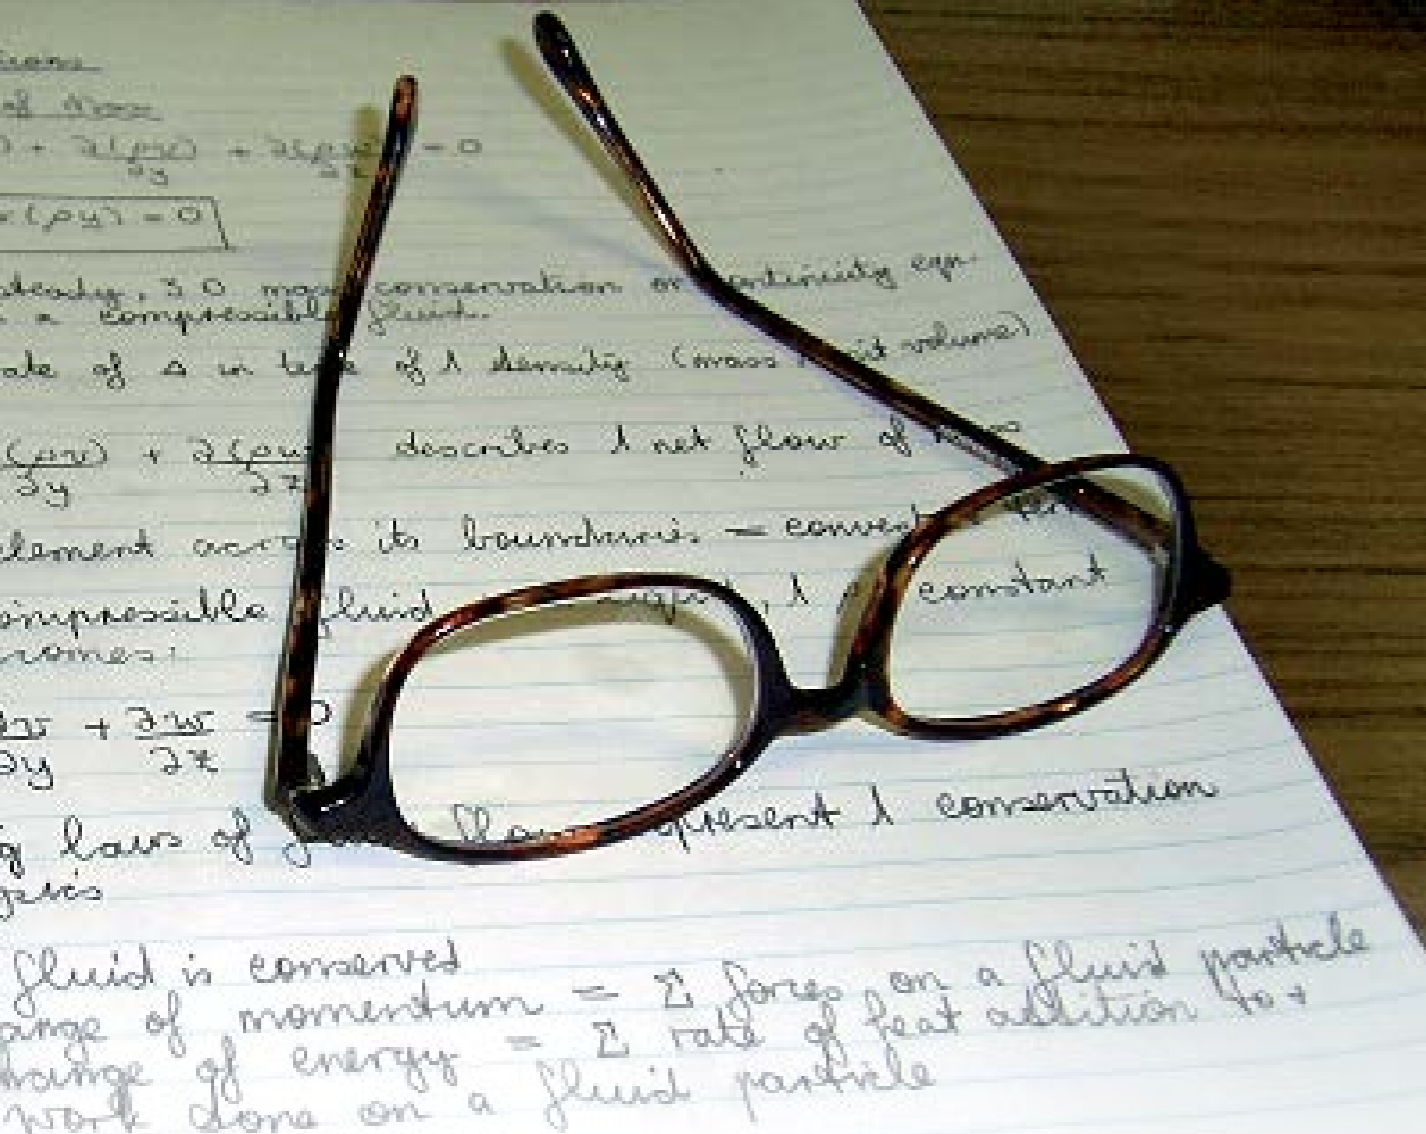 of Mass
+ ∂(ρv)/∂y + ∂(ρw)/∂z = 0
(ρu) = 0
steady, 3D mass conservation or continuity eqn.
a compressible fluid.
of Δ in t of 1 density (mass unit volume)
(ρv)/∂y + ∂(ρw)/∂z describes 1 net flow of mass
element across its boundaries = term
fluid, 1 constant
∂y + ∂w/∂z = 0
laws of flow represent 1 conservation
fluid is conserved
of momentum = Σ forces on a fluid particle
of energy = Σ rate of heat addition to +
work done on a fluid particle